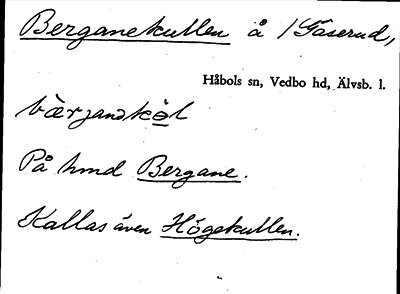 Berganekullen å 1 Gaserud,
Håbols sn, Vedbo hd, Älvsb. l.
På hmd Bergane.
Kallas även Högekullen.